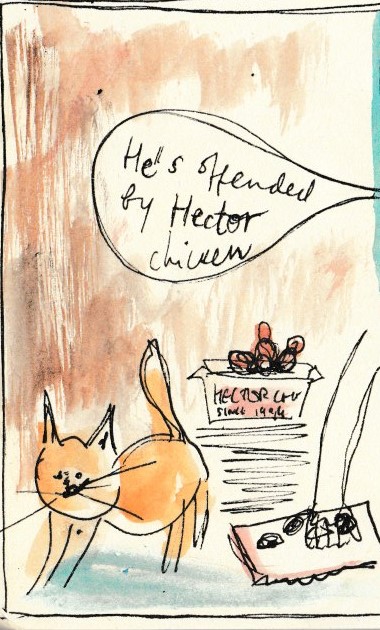 He's offended
by Hector
chicken
HECTOR
SINCE 1994